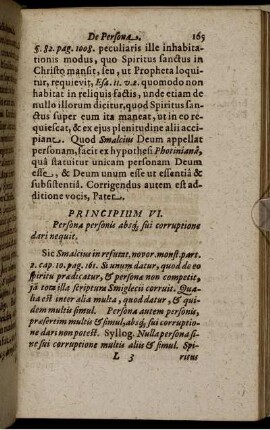 De Persona. 165
§. 82. pag. 1008. peculiaris ille inhabita-
tionis modus, quo Spiritus sanctus in
Christo mansit, seu, ut Propheta loqui-
tur, requievit, Esa. 11. v. 2. quomodo non
habitat in reliquis factis, unde etiam de
nullo illorum dicitur, quod Spiritus san-
ctus super eum ita maneat, ut in eo re-
quiescat, & ex ejus plenitudine alii acci-
piant. Quod Smalcius Deum appellat
personam, facit ex hypothesi Photinianâ,
quâ statuitur unicam personam Deum
esse, & Deum unum esse ut essentiâ &
subsistentiâ. Corrigendus autem est ad-
ditione vocis, Pater.
PRINCIPIUM VI.
Persona personis absq; sui corruptione
dari nequit.
Sic Smalcius in refutat. novor. monst. part.
2. cap. 10. pag. 161. Si unum datur, quod de eo
spiritu prædicatur, & personæ non competit,
jā tota illa scriptura Smiglecii corruit. Qua-
lia est inter alia multa, quod datur, & qui-
dem multis simul. Persona autem personis,
præsertim multis & simul, absq; sui corruptio-
ne dari non potest. Syllog. Nulla persona si-
ne sui corruptione multis aliis & simul. Spi-
L 3 ritus